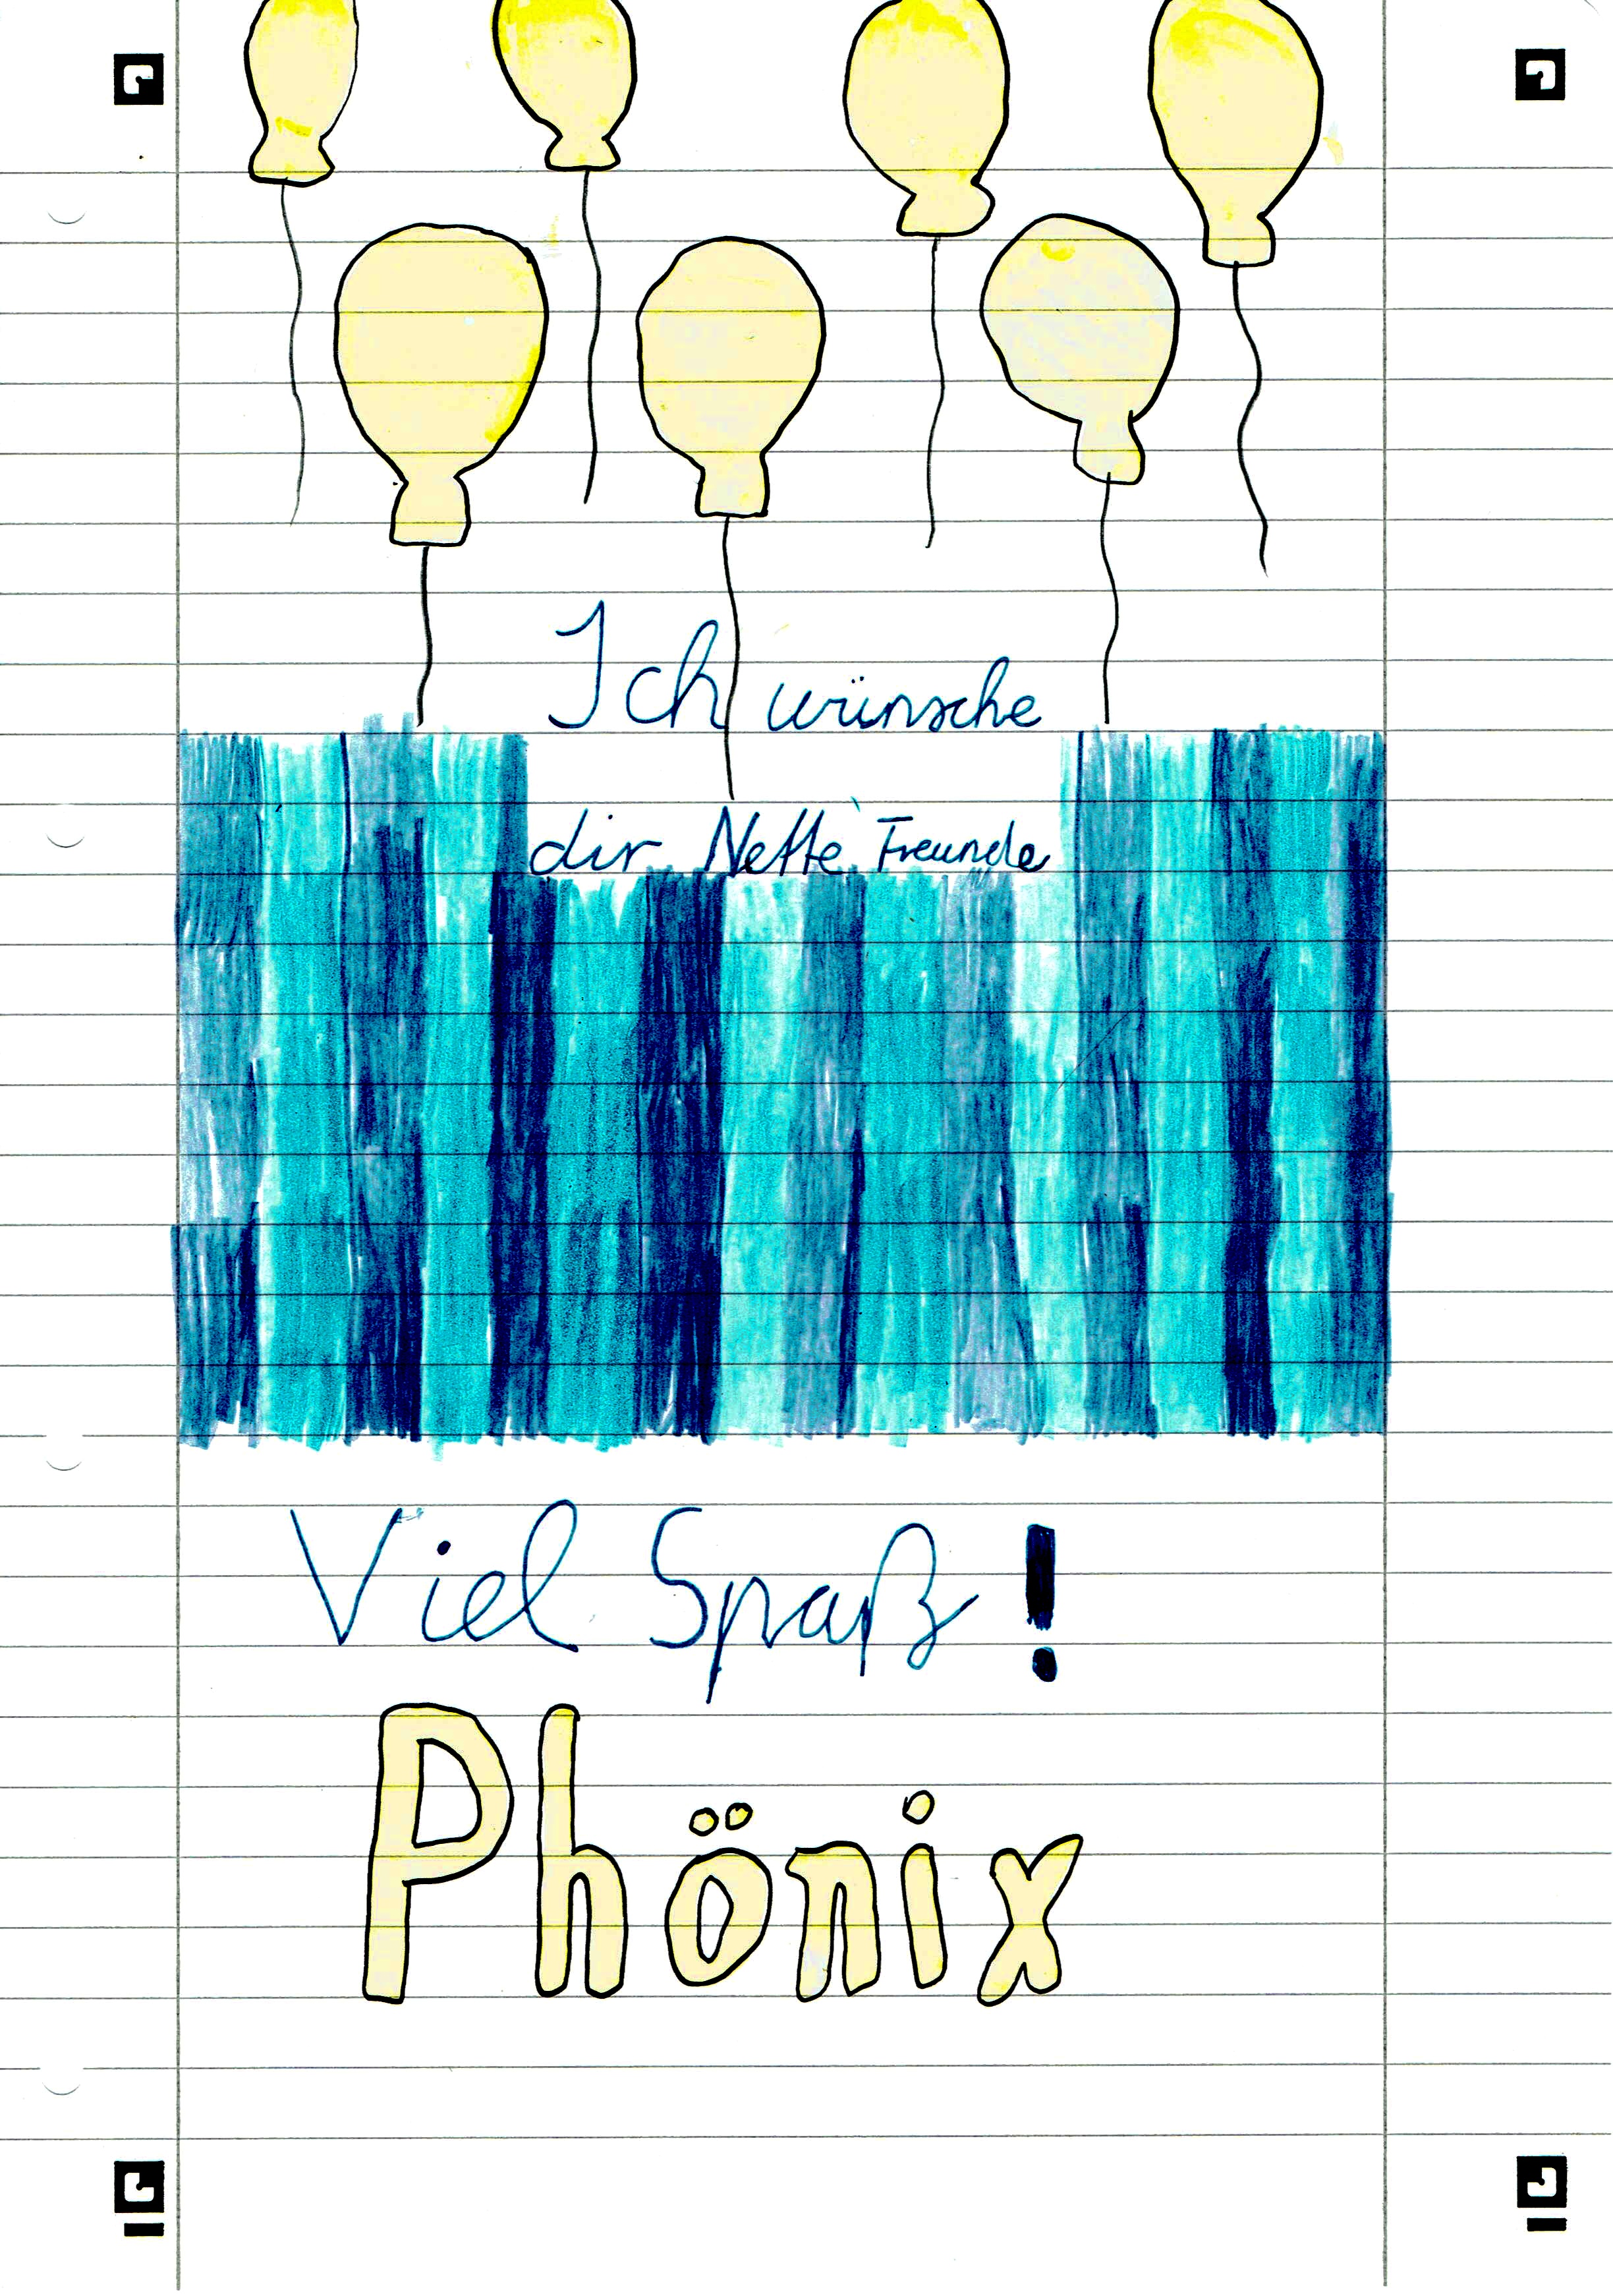 Ich wünsche
dir Nette Freunde
Viel Spaß!
Phönix